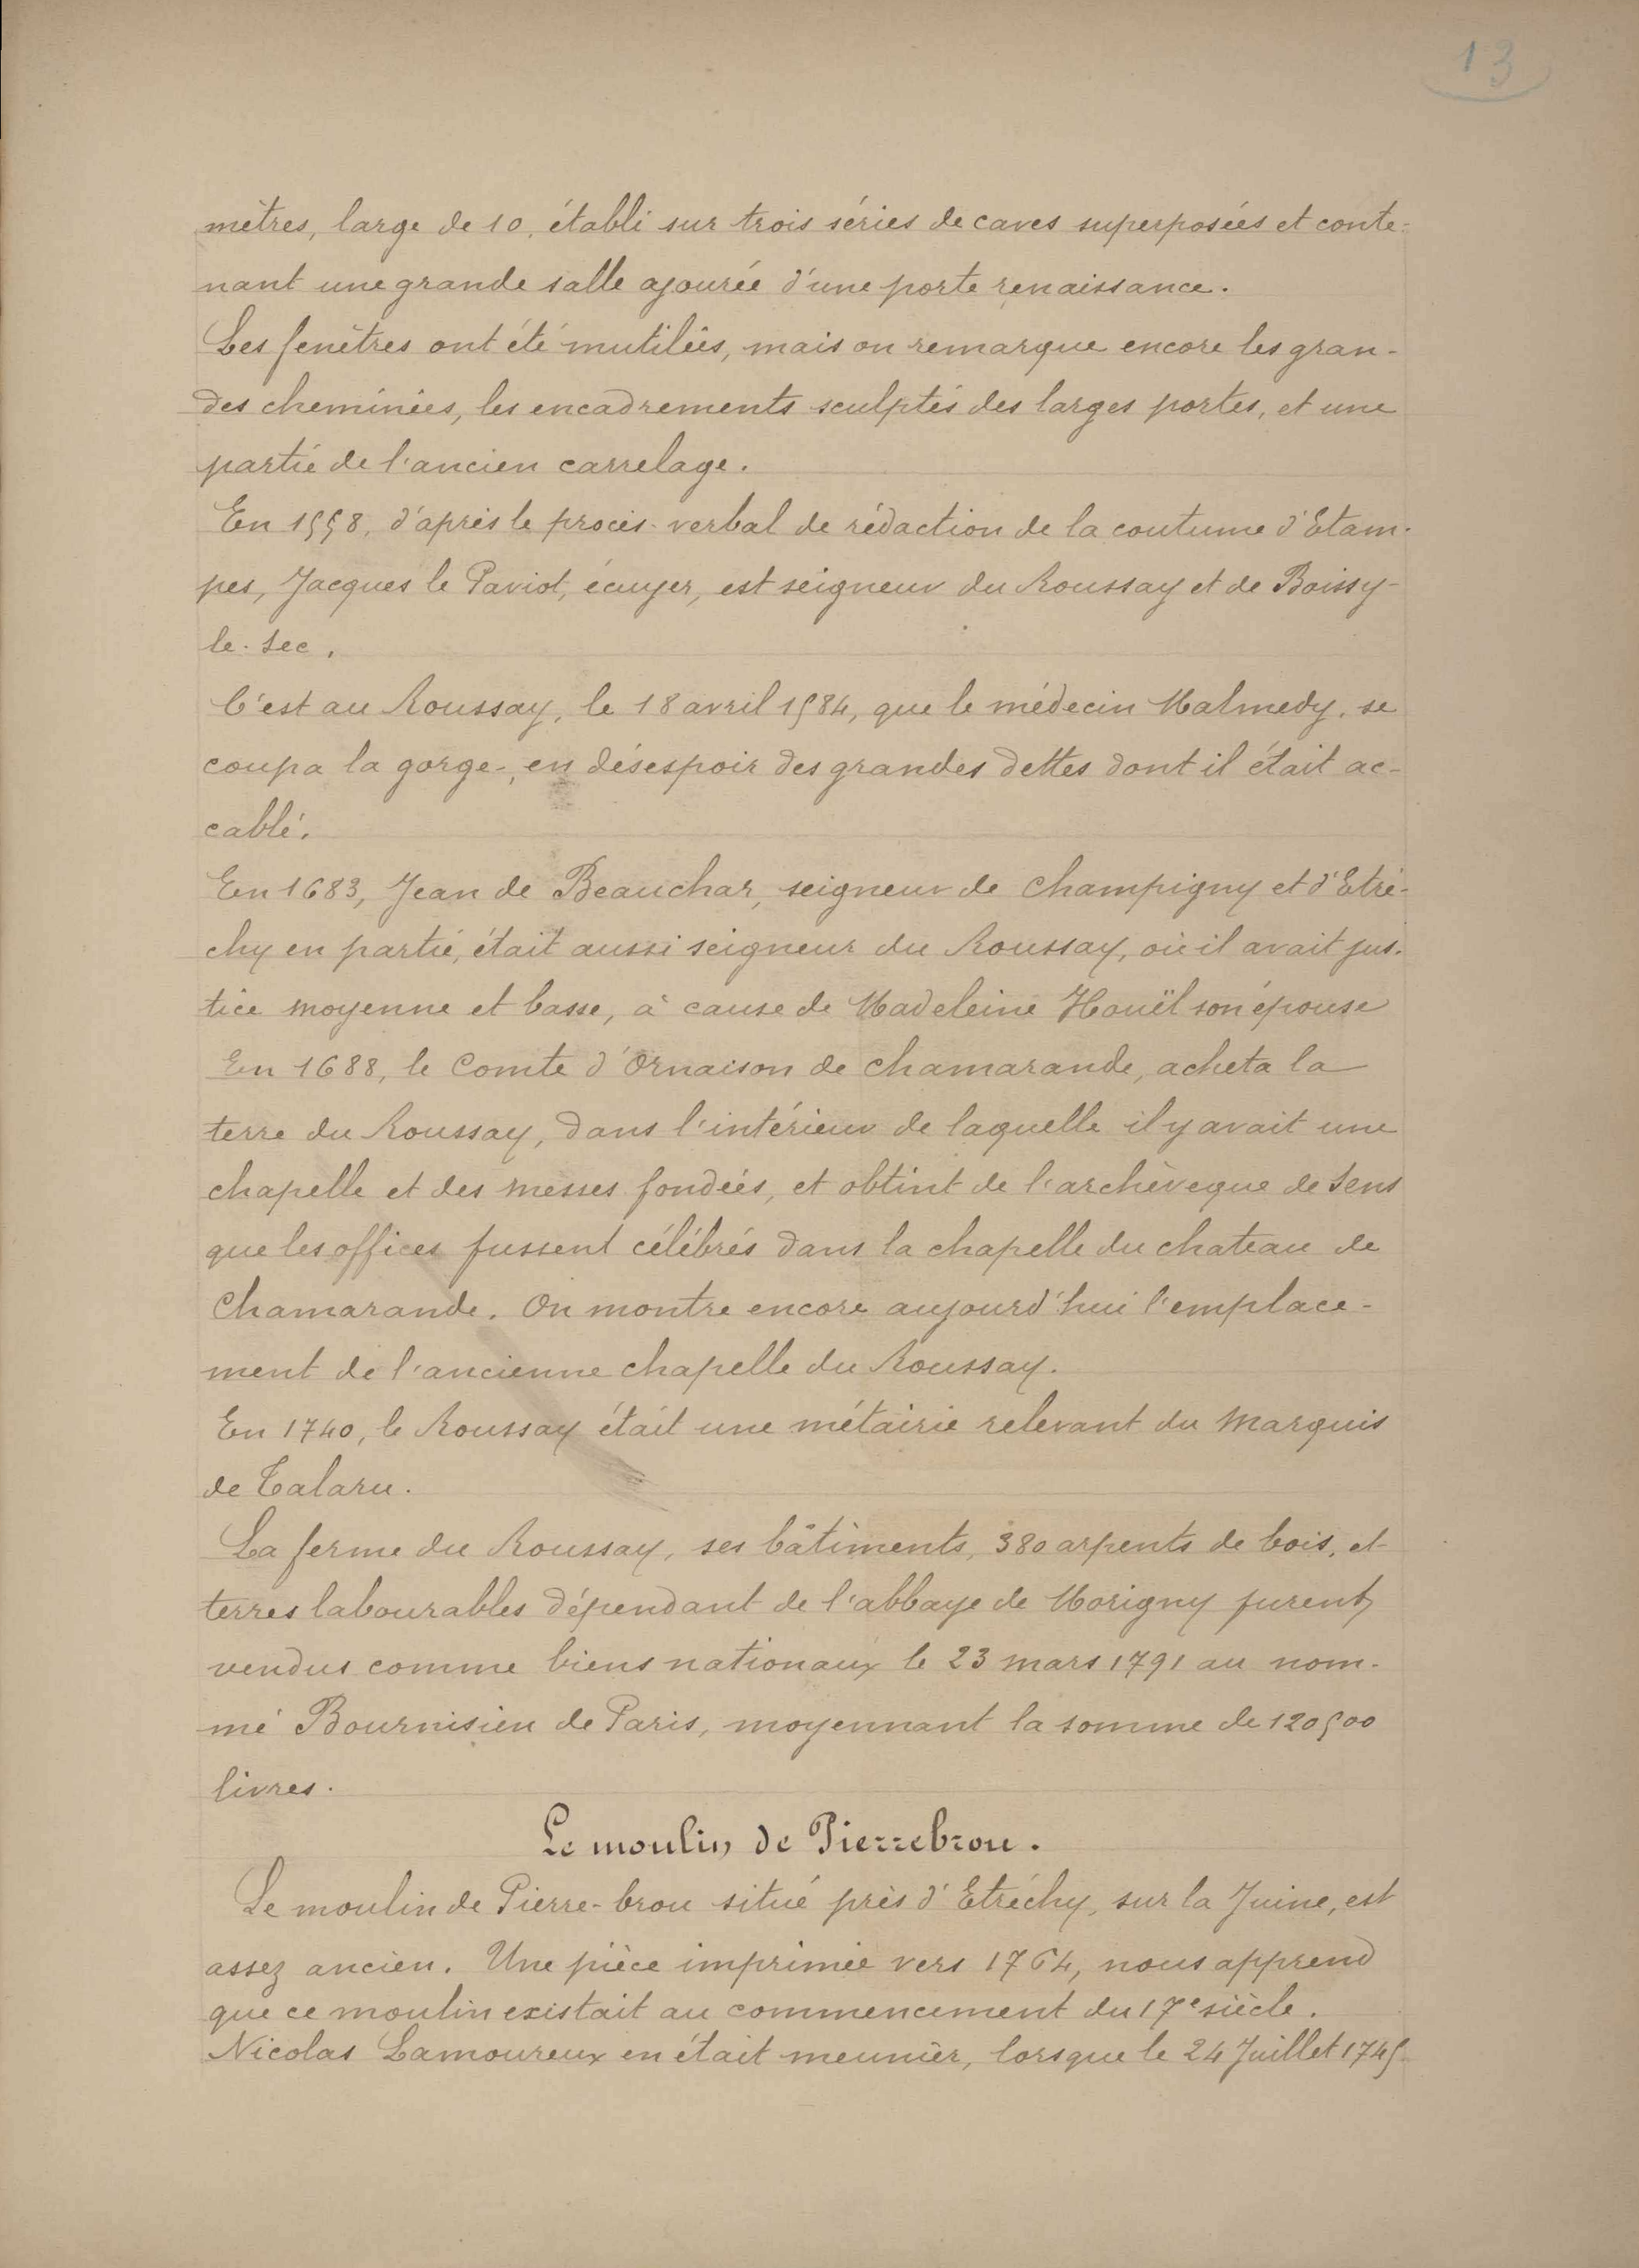 13
mètres, large de 10, établi sur trois séries de caves superposées et conte-
nant une grande salle ajourée d'une porte renaissance.
Les fenêtres ont été mutilées, mais on remarque encore les gran-
des cheminées, les encadrements sculptés des larges portes, et une
partie de l'ancien carrelage.
En 1558, d'après le procès-verbal de rédaction de la coutume d'Etam-
pes, Jacques le Paviot, écuyer, est seigneur du Roussay et de Boissy-
le-Sec.
C'est au Roussay, le 18 avril 1584, que le médecin Malmedy, se
coupa la gorge, en désespoir des grandes dettes dont il était ac-
cablé.
En 1683, Jean de Beauchar, seigneur de Champigny et d'Etré-
chy en partie, était aussi seigneur du Roussay, où il avait jus-
tice moyenne et basse, à cause de Madeleine Houël son épouse
En 1688, le Comte d'Ornaison de Chamarande, acheta la
terre du Roussay, dans l'intérieur de laquelle il y avait une
chapelle et des messes fondées, et obtint de l'archèveque de Sens
que les offices fussent célébrés dans la chapelle du chateau de
Chamarande. On montre encore aujourd'hui l'emplace-
ment de l'ancienne chapelle du Roussay.
En 1740, le Roussay était une métairie relevant du Marquis
de Talaru.
La ferme du Roussay, ses bâtiments, 380 arpents de bois, et
terres labourables dépendant de l'abbaye de Morigny furent
vendus comme biens nationaux le 23 mars 1791 au nom-
mé Bournisien de Paris, moyennant la somme de 120500
livres.
Le moulin de Pierrebrou.
Le moulin de Pierre-brou situé près d'Etréchy, sur la Juine, est
assez ancien. Une pièce imprimée vers 1764, nous apprend
que ce moulin existait au commencement du 17e siècle.
Nicolas Lamoureux en était meunier, lorsque le 24 Juillet 1745